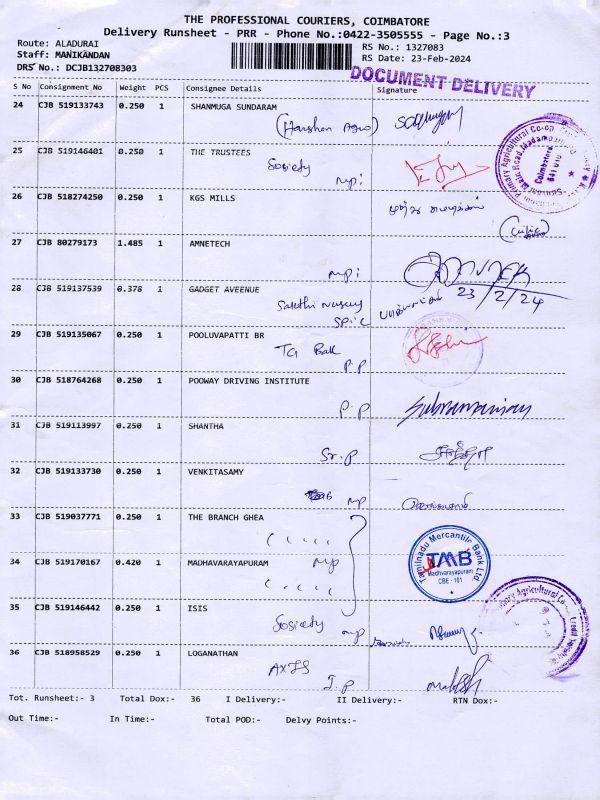 THE PROFESSIONAL COURIERS, COIMBATORE
Delivery Runsheet - PRR - Phone No.:0422-3505555 - Page No.:3
Route: ALADURAI
RS No.: 1327083
Staff: MANIKANDAN
RS Date: 23-Feb-2024
DRS No.: DCJB132708303
DOCUMENT DELIVERY
S No Consignment No Weight PCS Consignee Details Signature
24 CJB 519133743 0.250 1 SHANMUGA SUNDARAM
25 CJB 519146401 0.250 1 THE TRUSTEES
Society
26 CJB 518274250 0.250 1 KGS MILLS
27 CJB 80279173 1.485 1 AMNETECH
23/2/24
28 CJB 519137539 0.378 1 GADGET AVEENUE
Sakthi
29 CJB 519135067 0.250 1 POOLUVAPATTI BR
P.P
30 CJB 518764268 0.250 1 POOWAY DRIVING INSTITUTE
P.P Subramaniam
31 CJB 519113997 0.250 1 SHANTHA
32 CJB 519133730 0.250 1 VENKITASAMY
33 CJB 519037771 0.250 1 THE BRANCH GHEA
Tamilnadu Mercantile Bank Ltd
TMB
Madhvarayapuram
CBE - 101
34 CJB 519170167 0.420 1 MADHAVARAYAPURAM
35 CJB 519146442 0.250 1 ISIS
Society
36 CJB 518958529 0.250 1 LOGANATHAN
AXIS
I.P
Tot. Runsheet:- 3 Total Dox:- 36 I Delivery:- II Delivery:- RTN Dox:-
Out Time:- In Time:- Total POD:- Delvy Points:-